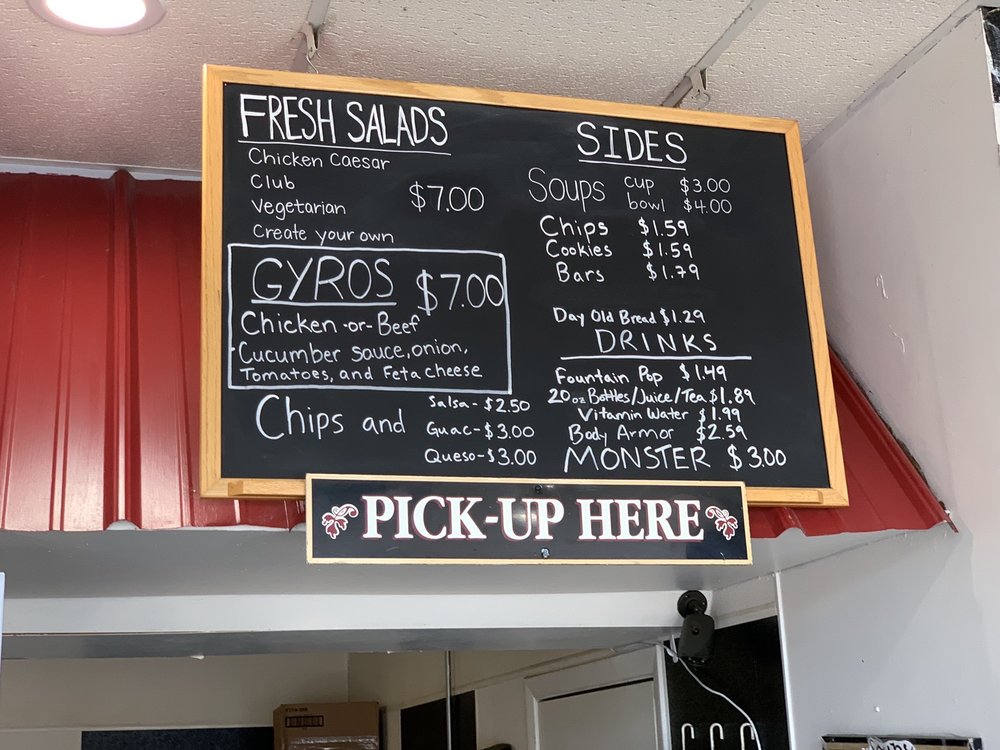 FRESH SALADS
Chicken Caesar
Club
Vegetarian
Create your own
$7.00
GYROS $7.00
Chicken -or- Beef
Cucumber sauce, onion,
Tomatoes, and Feta cheese
Chips and
Salsa - $2.50
Guac - $3.00
Queso - $3.00
SIDES
Soups cup $3.00
bowl $4.00
Chips $1.59
Cookies $1.59
Bars $1.79
Day Old Bread $1.29
DRINKS
Fountain Pop $1.49
20oz Bottles/Juice/Tea $1.89
Vitamin Water $1.99
Body Armor $2.59
MONSTER $3.00
PICK-UP HERE